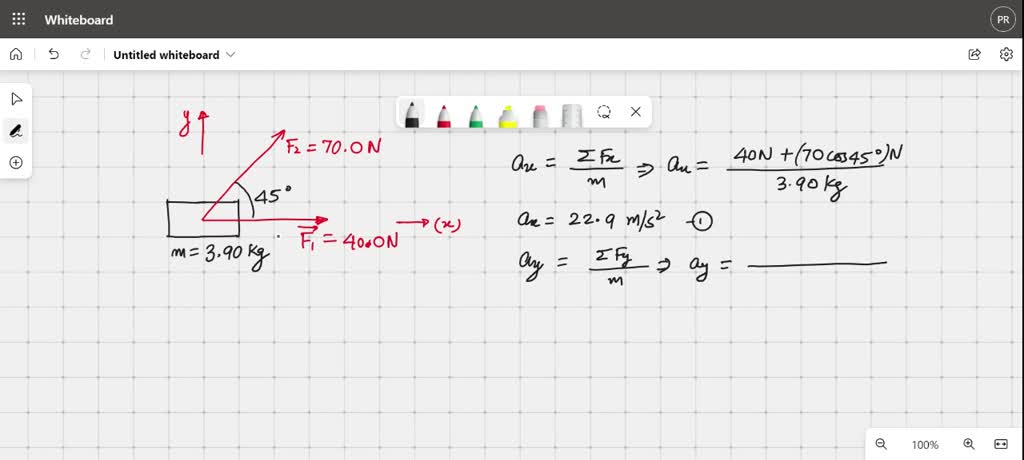 Whiteboard
PR
Untitled whiteboard
y
F₂ = 70.0 N
45°
F₁ = 40.0N
(x)
m = 3.90 kg
ax = ΣFx / m ⇒ ax = 40N + (70 cos 45°)N / 3.90 kg
ax = 22.9 m/s² —①
ay = ΣFy / m ⇒ ay =
100%